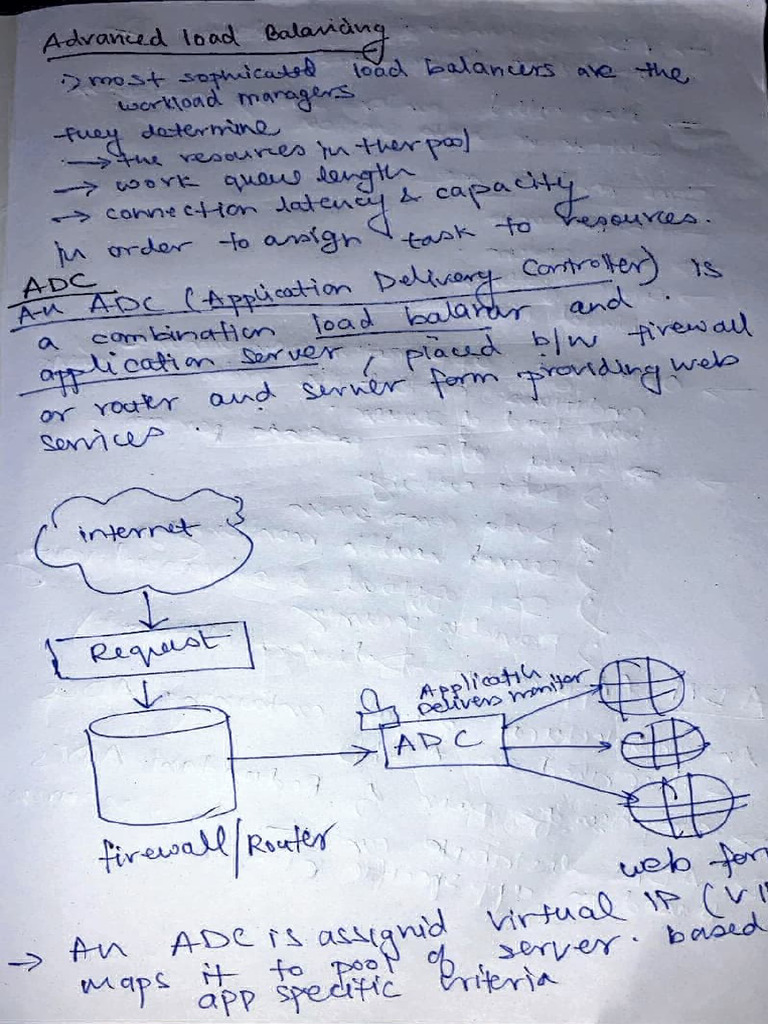 Advanced load Balancing
:) most sophicated load balancers are the
workload managers
they determine
→ the resources in their pool
→ work queue length
→ connection latency & capacity
in order to assign task to resources.
ADC
An ADC (Application Delivery Controller) is
a combination load balancer and
application server, placed b/w firewall
or router and server form providing web
services.
internet
Request
Application
Delivers monitor
ADC
firewall/Router
web for
→ An ADC is assigned virtual IP (VI
maps it to pool of server. based
app specific criteria